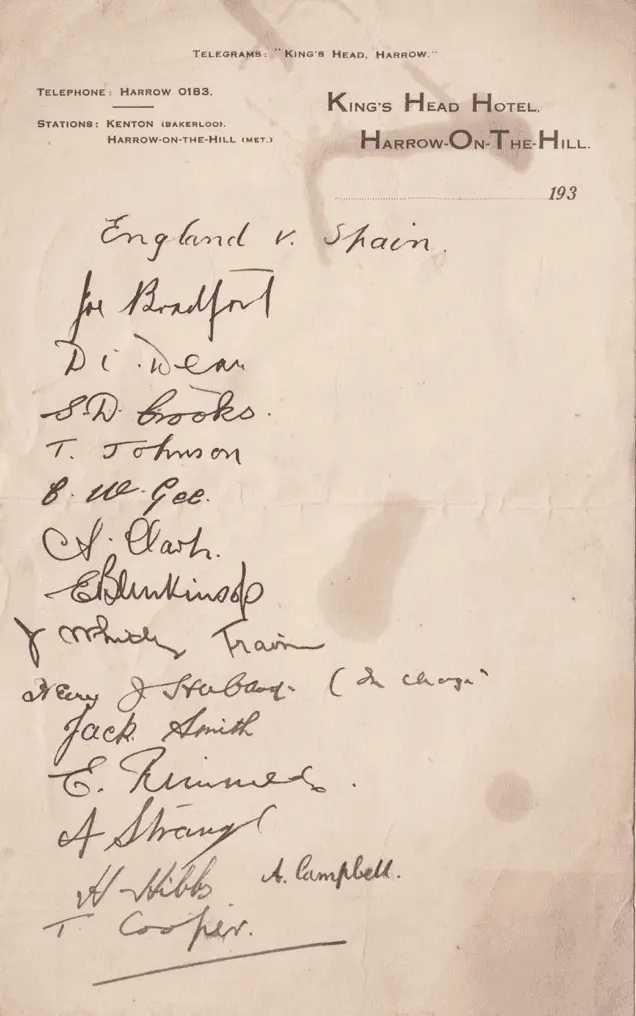 TELEGRAMS: "KING'S HEAD, HARROW."
TELEPHONE: HARROW 0183.
KING'S HEAD HOTEL,
STATIONS: KENTON (BAKERLOO).
HARROW-ON-THE-HILL (MET.)
HARROW-ON-THE-HILL.
193
England v. Spain.
Joe Bradford
Di. Dean
S.D. Crooks.
T. Johnson
C. W. Gee.
A. Clark.
E Blenkinsop
J Trainer
J (In charge
Jack Smith
E. Rimmer.
A Strange
H Hibbs A. Campbell.
T Cooper.